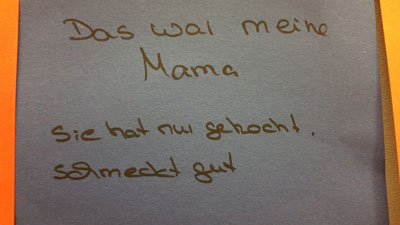 Das war meine
Mama
Sie hat nur gekocht.
schmeckt gut